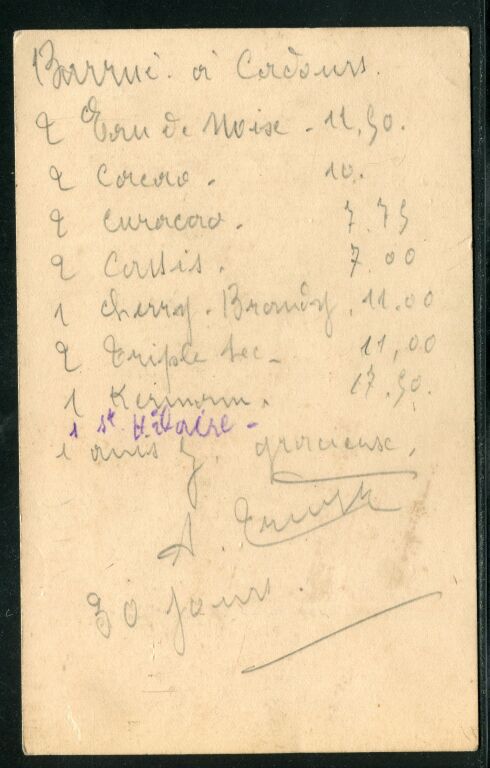 Barrué. à Cadours.
2 Eau de Noix - 11,50.
2 Cacao. 10.
2 Curacao. 7.75
2 Cassis. 7.00
1 Cherry. Brandy. 11.00
2 Triple sec - 11,00
1 Kermann. 17.50.
1 St Hilaire -
1 anis g. gracieuse.
A.
30 jours.